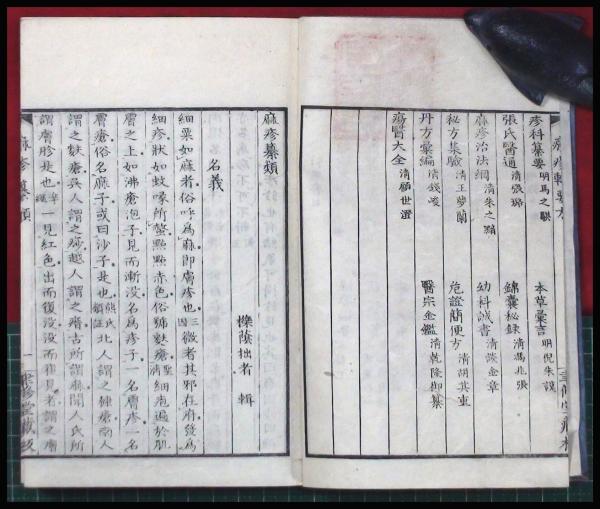 疹科纂要 明馬之騏 本草彙言 明倪朱謨
張氏醫通 清張璐 錦囊秘録 清馮兆張
麻疹治法綱 清朱之黯 幼科誠書 清談金章
秘方集驗 清王夢蘭 危證簡便方 清胡其重
丹方彙編 清錢峻 醫宗金鑑 清乾隆御纂
瘍醫大全 清顧世澄
麻疹纂類
櫟蔭拙者 輯
名義
細粟如麻者俗呼爲麻即膚疹也三因微者其邪在府發爲
細疹狀如蚊喙所螫點點赤色俗號麩瘡聖濟細疱遍於肌
膚之上如沸瘡泡子見而漸没名爲疹子一名膚疹一名
膚瘡俗名麻子或曰沙子是也熊氏類證北人謂之㾦瘡南人
謂之麩瘡吳人謂之㾦越人謂之瘄古所謂麻閻人氏所
謂膚胗是也準繩一見紅色出而復没没而復見者謂之膚
麻疹纂類 一 聿修堂藏板